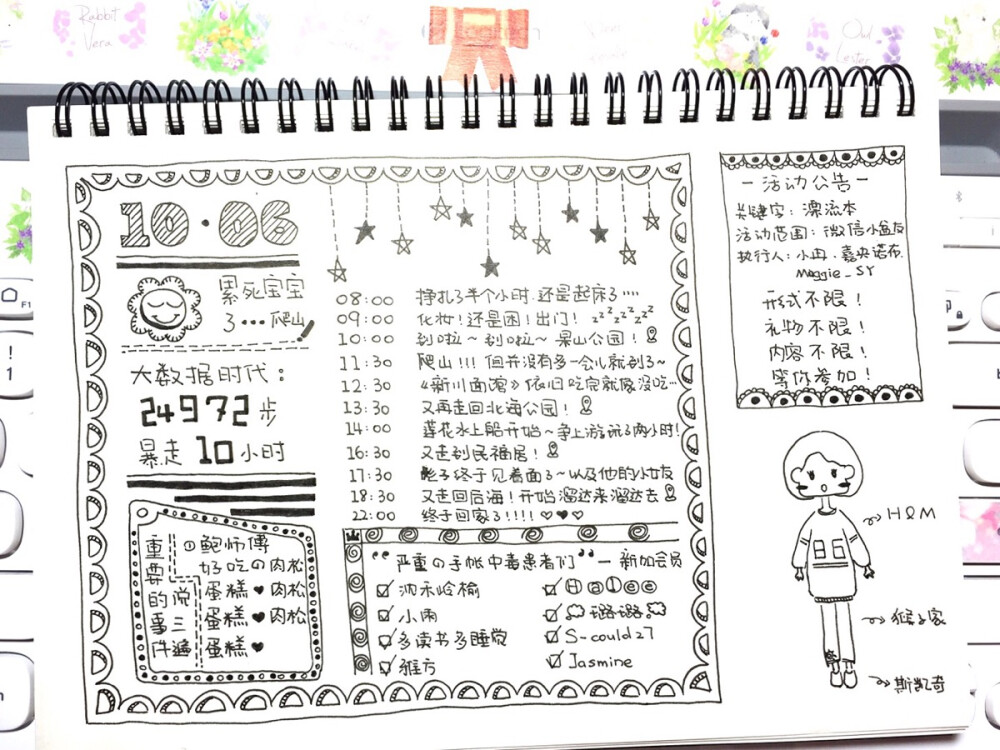 Rabbit
Vera
Owl
Lester
10·06
累死宝宝
了•••爬山
大数据时代：
24972步
暴走10小时
重要的说三遍
事件
①鲍师傅
好吃の肉松
蛋糕♥肉松
蛋糕♥肉松
蛋糕♥
08:00 挣扎了半个小时.还是起床了····
09:00 化妆！还是困！出门！zzzzzzz
10:00 到啦～到啦～景山公园！
11:30 爬山!!! 但并没有多一会儿就到了~
12:30 《新川面馆》依旧吃完就像没吃…
13:30 又再走回北海公园！
14:00 莲花水上船开始～争上游玩了两小时！
16:30 又走到民福居！
17:30 鬼子终于见着面了~以及他的小女友
18:30 又走回后海！开始溜达来溜达去
22:00 终于回家了!!!! ♡♥♡
“严重の手帐中毒患者们”— 新加会员
小雨
多读书多睡觉
雅方
Halee
璐璐
S-could27
Jasmine
—活动公告—
关键字：漂流本
活动范围：微信小盆友
执行人：小冉.嘉央诺布.
Maggie_SY
形式不限！
礼物不限！
内容不限！
等你参加！
H&M
猴子家
斯凯奇
F1
!
1